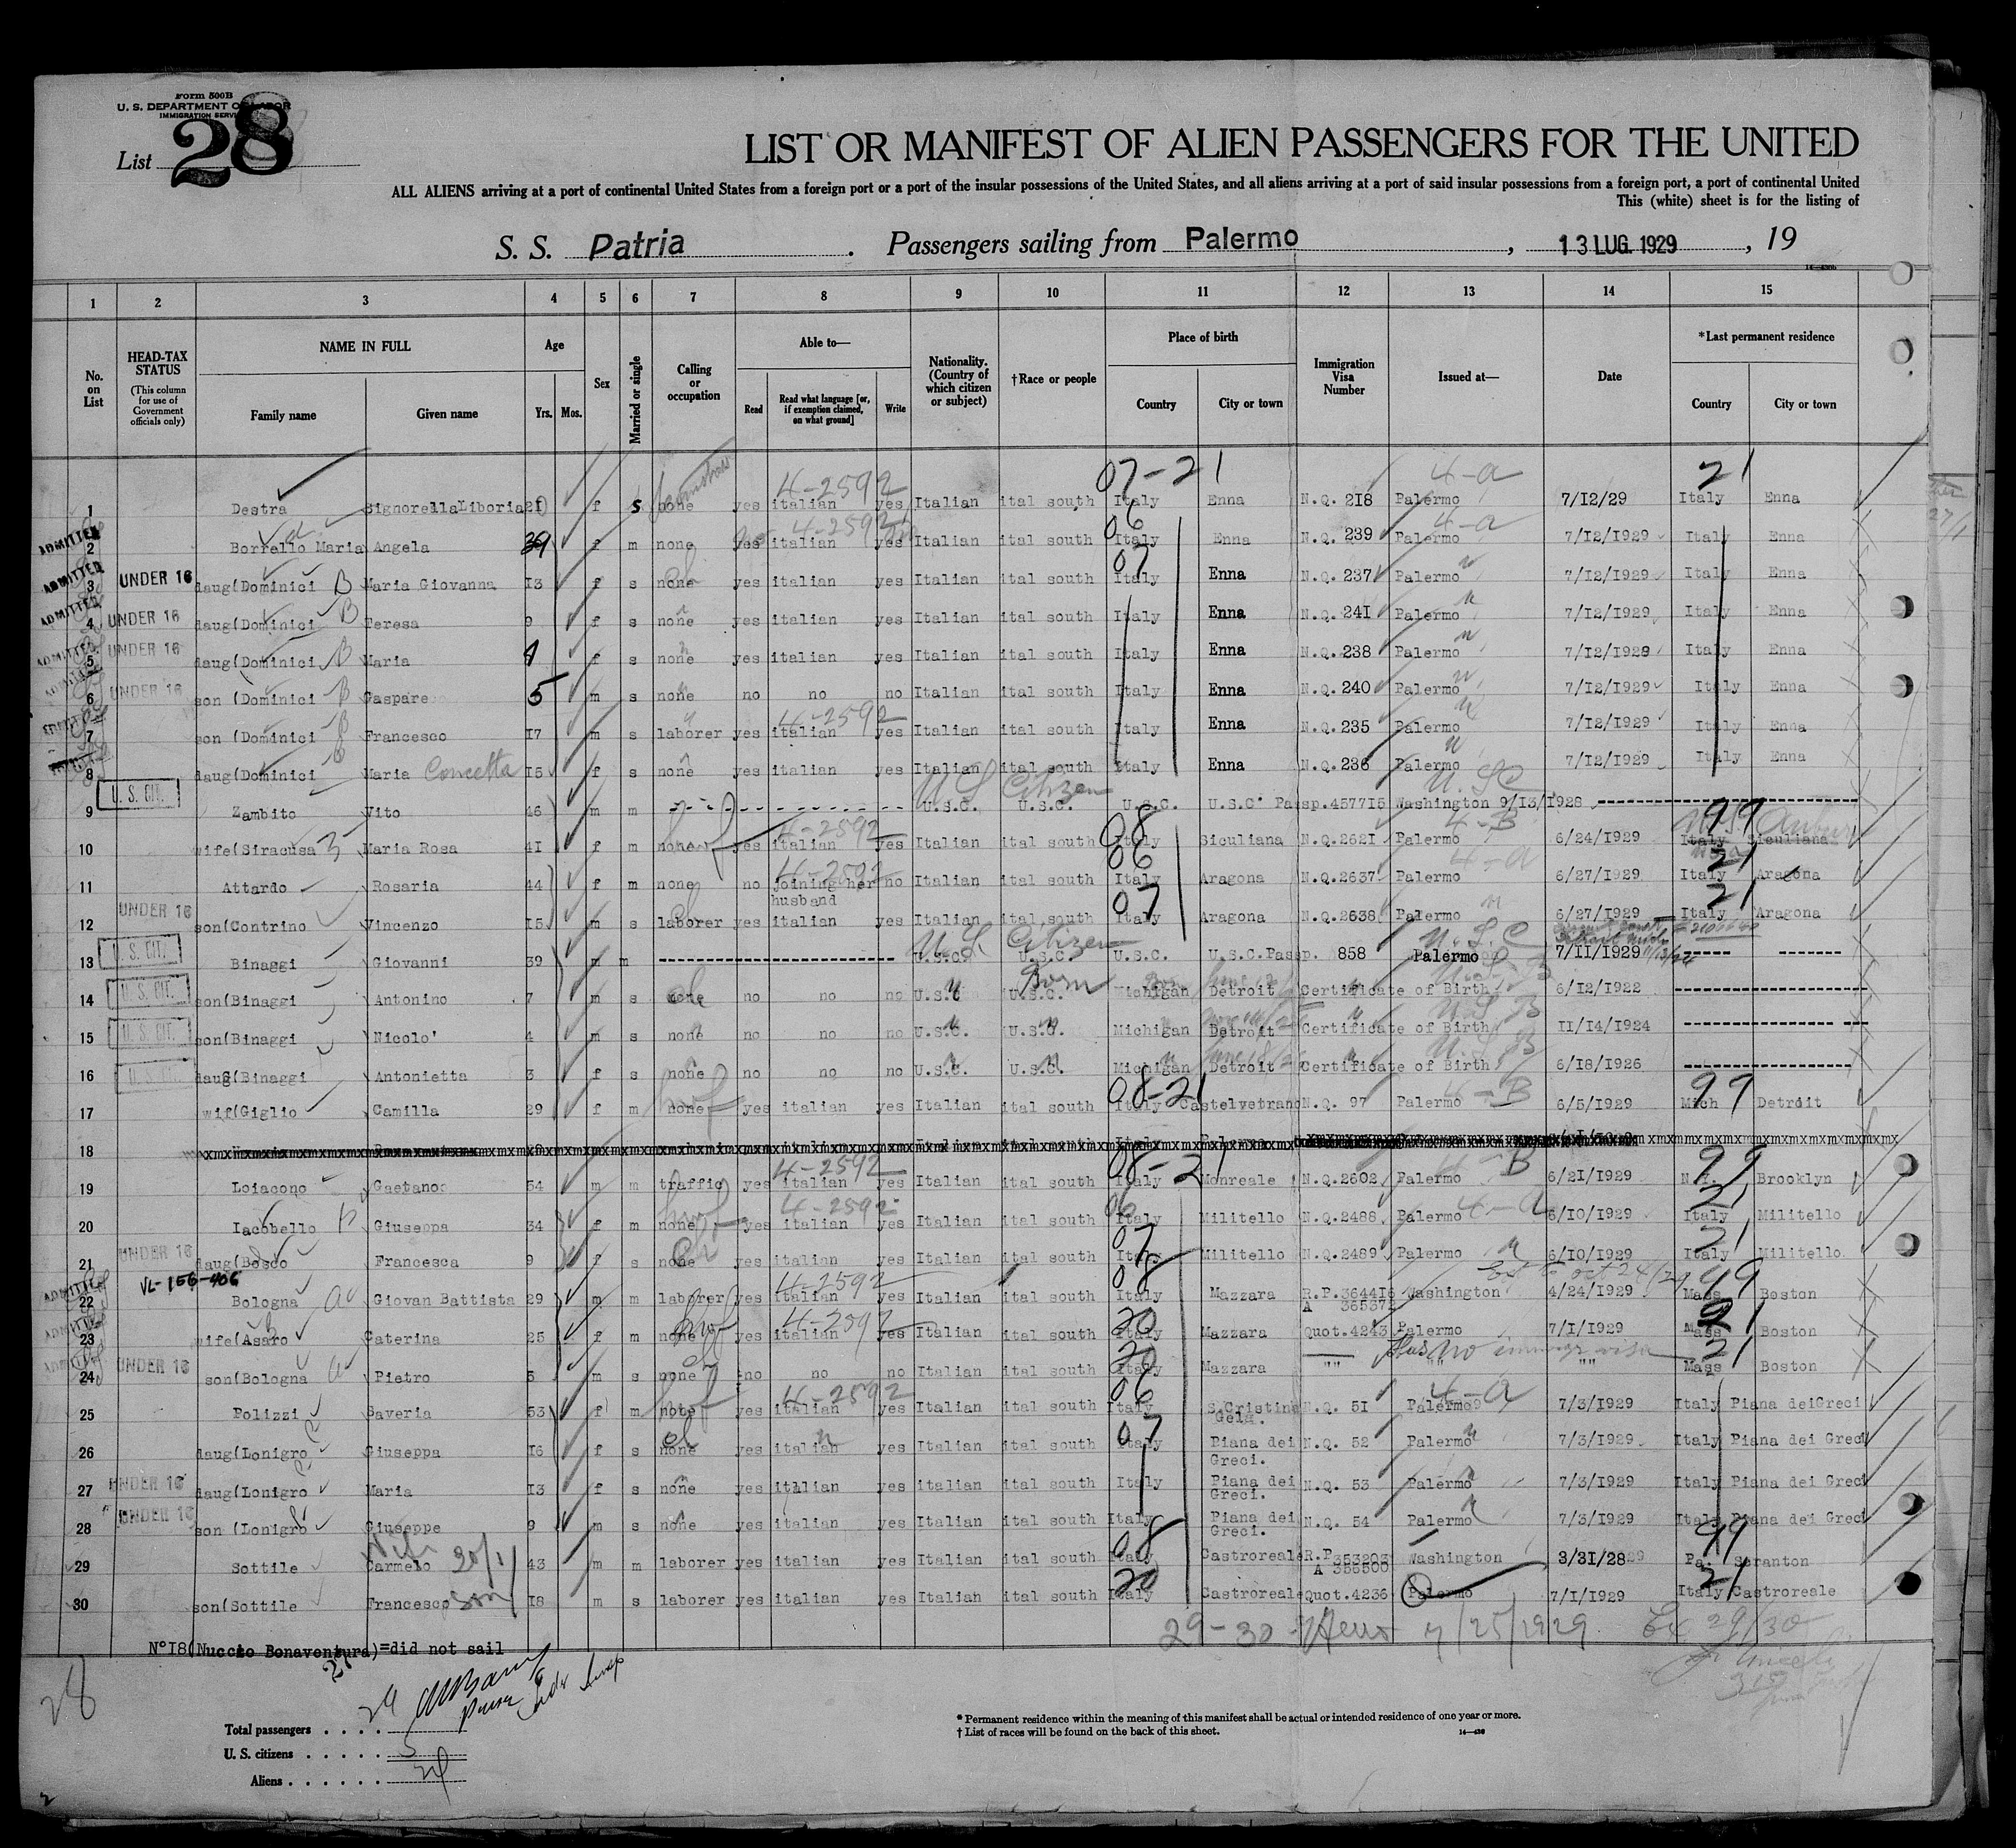 Form 500B
U. S. DEPARTMENT OF LABOR
IMMIGRATION SERVICE
List 28
LIST OR MANIFEST OF ALIEN PASSENGERS FOR THE UNITED
ALL ALIENS arriving at a port of continental United States from a foreign port or a port of the insular possessions of the United States, and all aliens arriving at a port of said insular possessions from a foreign port, a port of continental United
This (white) sheet is for the listing of
S. S. Patria. Passengers sailing from Palermo, 13 LUG. 1929, 19
1 2 3 4 5 6 7 8 9 10 11 12 13 14 15
No. on List
HEAD-TAX STATUS (This column for use of Government officials only)
NAME IN FULL
Family name Given name
Age
Yrs. Mos.
Sex
Married or single
Calling or occupation
Able to—
Read Read what language [or, if exemption claimed, on what ground] Write
Nationality. (Country of which citizen or subject)
†Race or people
Place of birth
Country City or town
Immigration Visa Number
Issued at—
Date
*Last permanent residence
Country City or town
07-21 4-2592 4-a 21
1 Destra Signorella Liboria 21 f s none yes italian yes Italian ital south Italy Enna N.Q. 218 Palermo 7/12/29 Italy Enna
ADMITTED 2 Borrello Maria Angela 39 f m none yes italian yes Italian ital south Italy Enna N.Q. 239 Palermo 7/12/1929 Italy Enna
ADMITTED 3 UNDER 16 daug(Dominici B Maria Giovanna 13 f s none yes italian yes Italian ital south Italy Enna N.Q. 237 Palermo 7/12/1929 Italy Enna
ADMITTED 4 UNDER 16 daug(Dominici B Teresa 9 f s none yes italian yes Italian ital south Italy Enna N.Q. 241 Palermo 7/12/1929 Italy Enna
ADMITTED 5 UNDER 16 daug(Dominici B Maria f s none yes italian yes Italian ital south Italy Enna N.Q. 238 Palermo 7/12/1929 Italy Enna
ADMITTED 6 UNDER 16 son (Dominici B Gaspare 5 m s none no no no Italian ital south Italy Enna N.Q. 240 Palermo 7/12/1929 Italy Enna
ADMITTED 7 son (Dominici B Francesco 17 m s laborer yes italian yes Italian ital south Italy Enna N.Q. 235 Palermo 7/12/1929 Italy Enna
8 daug(Dominici B Maria Concetta 15 f s none yes italian yes Italian ital south Italy Enna N.Q. 236 Palermo 7/12/1929 Italy Enna
U. S. CIT. U S Citizen U.S.C
9 Zambito Vito 46 m m U.S.C. U.S.C. U.S.C. U.S.C. Passp. 457715 Washington 9/13/1928
10 wife(Siracusa Maria Rosa 41 f m none yes italian yes Italian ital south Italy Siculiana N.Q. 2621 Palermo 6/24/1929 Italy Siculiana
11 Attardo Rosaria 44 f m none no joining her husband no Italian ital south Italy Aragona N.Q. 2637 Palermo 6/27/1929 Italy Aragona
12 UNDER 16 son(Contrino Vincenzo 15 m s laborer yes italian yes Italian ital south Italy Aragona N.Q. 2638 Palermo 6/27/1929 Italy Aragona
U. S. CIT. U S Citizen U.S.C
13 Binaggi Giovanni 39 m m U.S.C. U.S.C. U.S.C. U.S.C. Passp. 858 Palermo 7/11/1929
14 U. S. CIT. son(Binaggi Antonino 7 m s none no no no U.S.C U.S.C. Born Michigan Detroit Certificate of Birth 6/12/1922
15 U. S. CIT. son(Binaggi Nicolo' 4 m s none no no no U.S.C. U.S.C. Michigan Detroit Certificate of Birth 11/14/1924
16 U. S. CIT. daug(Binaggi Antonietta 3 f s none no no no U.S.C. U.S.C. Michigan Detroit Certificate of Birth 6/18/1926
17 wif(Giglio Camilla 29 f m none yes italian yes Italian ital south Italy Castelvetrano N.Q. 97 Palermo 6/5/1929 Mich Detroit
18
19 Loiacono Gaetano 54 m m traffic yes italian yes Italian ital south Italy Monreale N.Q. 2602 Palermo 6/21/1929 N.Y. Brooklyn
20 Iacobello Giuseppa 34 f m none yes italian yes Italian ital south Italy Militello N.Q. 2488 Palermo 6/10/1929 Italy Militello
21 UNDER 16 daug(Bosco Francesca 9 f s none yes italian yes Italian ital south Italy Militello N.Q. 2489 Palermo 6/10/1929 Italy Militello
VL-156-406
ADMITTED 22 Bologna Giovan Battista 29 m m laborer yes italian yes Italian ital south Italy Mazzara R.P. 364416 A 365372 Washington 4/24/1929 Mass Boston
ADMITTED 23 wife(Asaro Caterina 25 f m none yes italian yes Italian ital south Italy Mazzara Quot. 4243 Palermo 7/1/1929 Mass Boston
Has no immigr visa
ADMITTED 24 UNDER 16 son(Bologna Pietro 5 m s none no no no Italian ital south Italy Mazzara "" "" "" Mass Boston
25 Polizzi Saveria 53 f m none yes italian yes Italian ital south Italy S. Cristina Gela. N.Q. 51 Palermo 7/3/1929 Italy Piana dei Greci
26 daug(Lonigro Giuseppa 16 f s none yes italian yes Italian ital south Italy Piana dei Greci. N.Q. 52 Palermo 7/3/1929 Italy Piana dei Greci
27 UNDER 16 daug(Lonigro Maria 13 f s none yes italian yes italian ital south Italy Piana dei Greci. N.Q. 53 Palermo 7/3/1929 Italy Piana dei Greci
28 UNDER 16 son (Lonigro Giuseppe 9 m s none yes italian yes Italian ital south Italy Piana dei Greci. N.Q. 54 Palermo 7/3/1929 Italy Piana dei Greci
29 Sottile Carmelo 43 m m laborer yes italian yes Italian ital south Italy Castroreale R.P. 353203 A 356500 Washington 3/31/28 Pa. Scranton
30 son(Sottile Francesco son 18 m s laborer yes italian yes Italian ital south Italy Castroreale Quot. 4236 Palermo 7/1/1929 Italy Castroreale
29-30 7/25/1929 29/30
N°18(Nuccio Bonaventura)=did not sail
28
Total passengers . . . . 29
U. S. citizens . . . . . 5
Aliens . . . . . . 24
* Permanent residence within the meaning of this manifest shall be actual or intended residence of one year or more.
† List of races will be found on the back of this sheet.
14—430